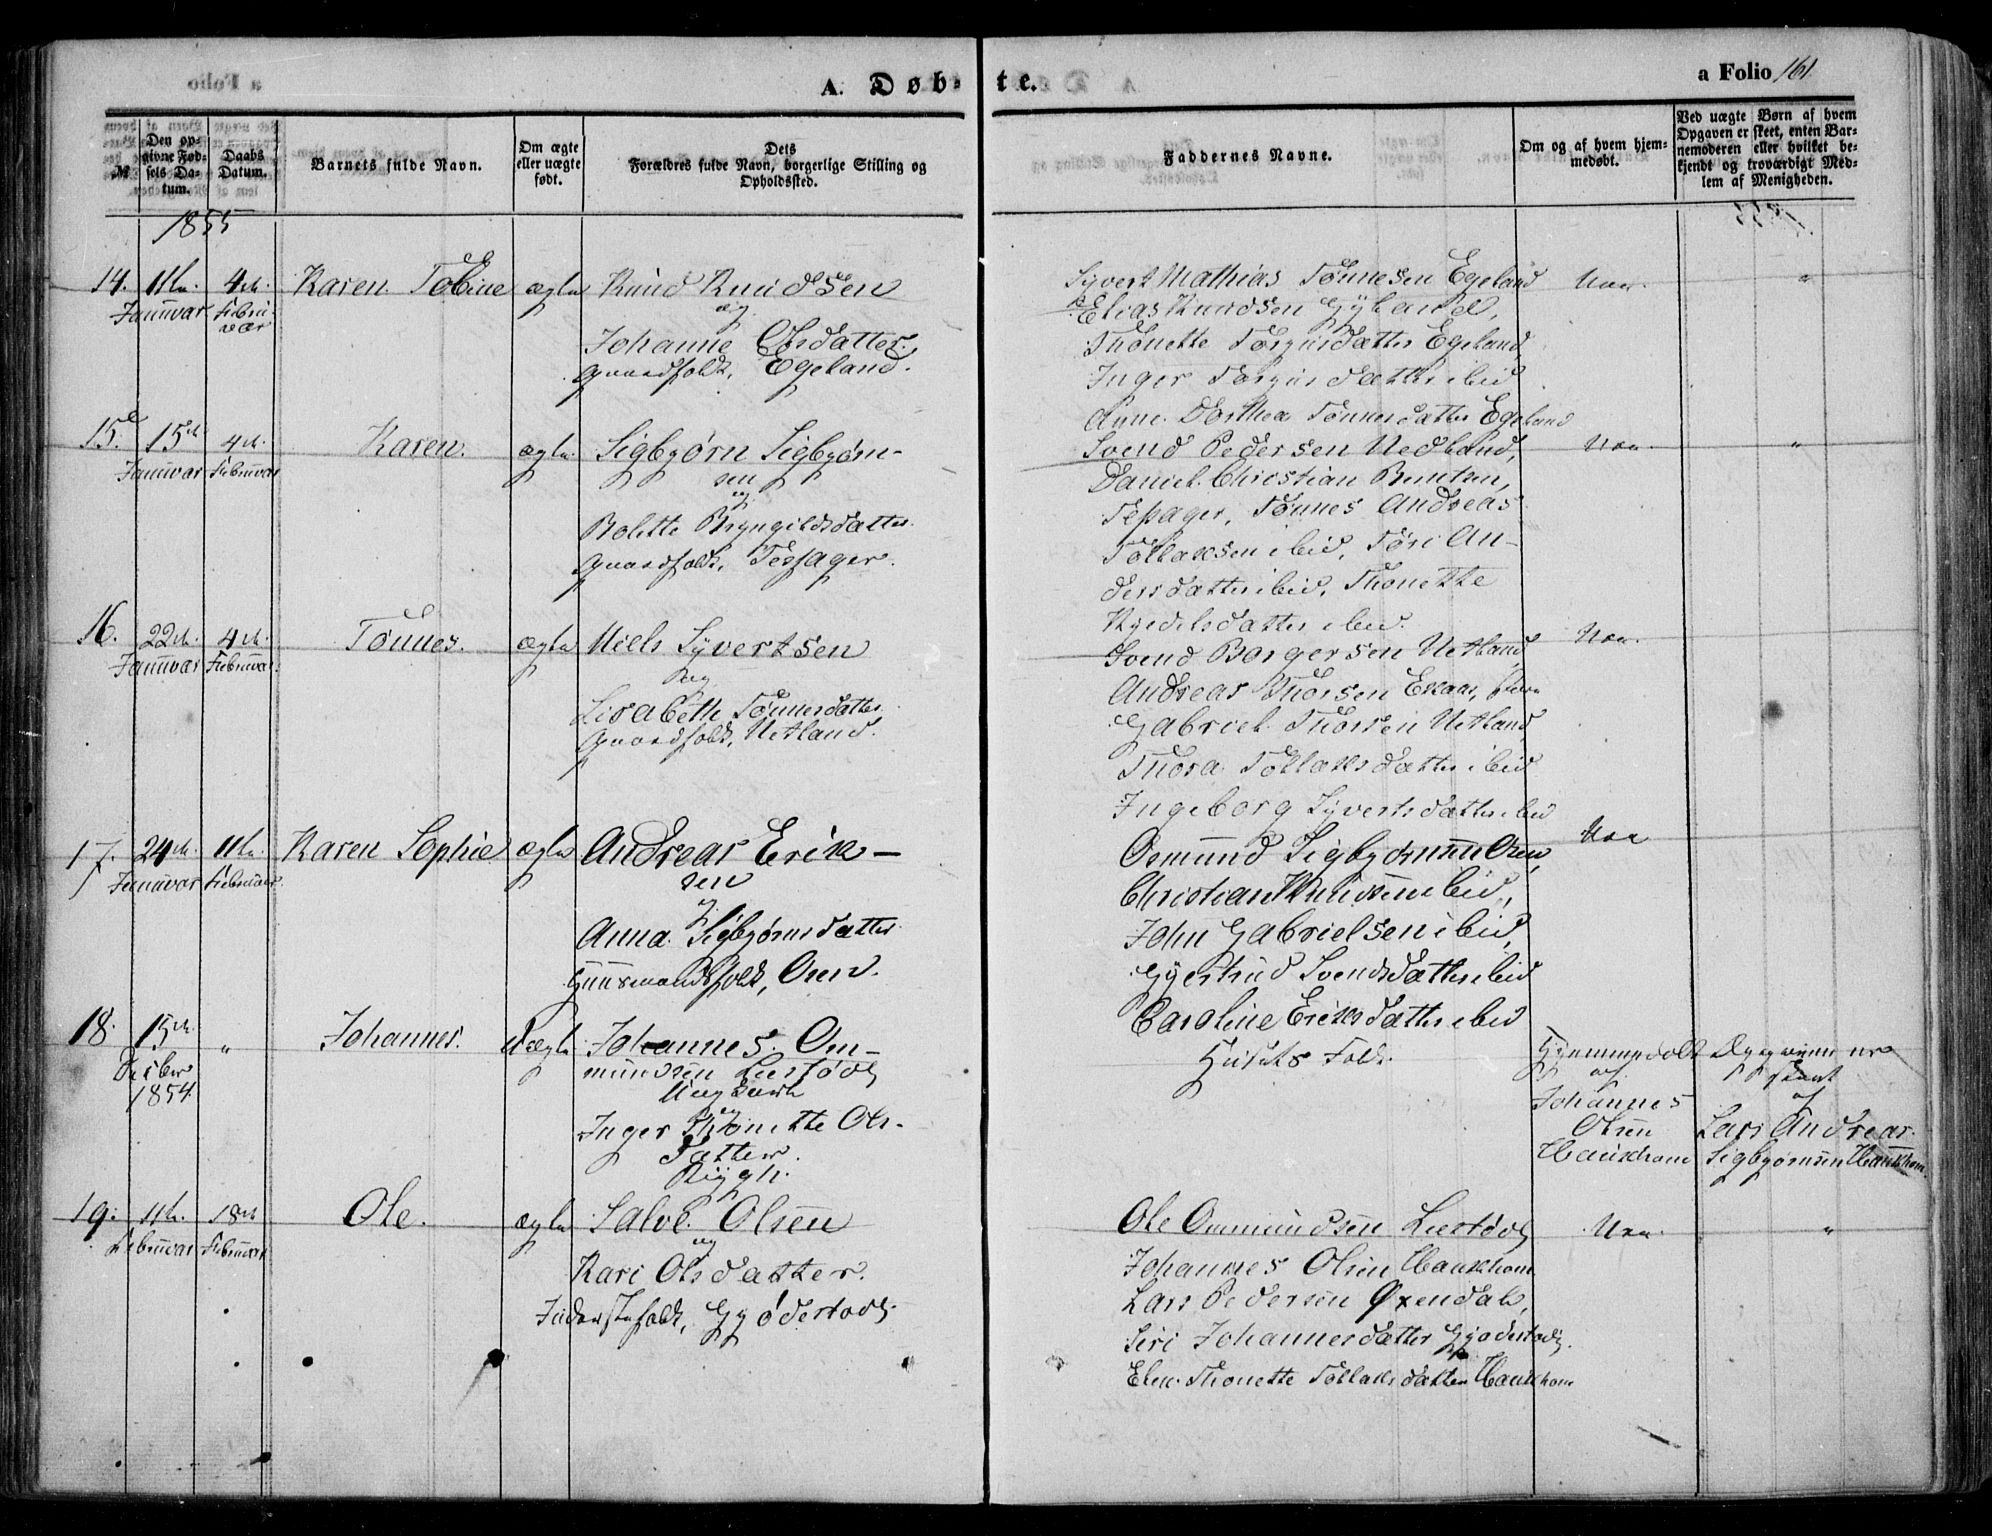 a Folio 161
A. Døbte.
№
Den opgivne Fødsels Datum.
Daabs Datum.
Barnets fulde Navn.
Om ægte eller uægte født.
Dets Forældres fulde Navn, borgerlige Stilling og Opholdssted.
Faddernes Navne.
Om og af hvem hjemmedøbt.
Ved uægte Børn af hvem Opgaven er skeet, enten Barnemoderen eller hvilket bekjendt og troværdigt Medlem af Menigheden.
1855
14. 11te Januar 4de Februvær
Karen Tobine
ægte
Knud Knudsen
og
Johanne Olsdatter.
Gaardfolk, Egeland.
Syvert Mathias Tønnesen Egeland
Elias Knudsen Gyland,
Thonette Torgusdatter Egeland,
Inger Torgusdatter ibid
Anne Dorthea Tønnesdatter Egeland
Nei.
"
15. 15de Januar 4de Februar
Karen.
ægte
Sigbjørn Sigbjørn-
sen
og
Bolette Bryngildsdatter
Gaardfolk, Tessager.
Svend Pedersen Nedland,
Daniel Christian Berntsen,
Tessager, Tønnes Andreas
Tollaksen ibid, Tøri An-
dersdatter ibid, Thonette
Kjedelsdatter ibid.
Nei.
"
16. 22de Januar 4de Februar
Tønnes.
ægte
Niels Syvertsen
og
Lisabeth Tønnesdatter
Gaardfolk, Netland.
Svend Borgersen Netland,
Andreas Thorsen Eskaas,
Gabriel Thorsen Netland
Thora Tollaksdatter ibid
Ingeborg Syvertsdatter ibid
Nei.
17. 24de Januar 11te Februar
Karen Sophie
ægte
Andreas Erik-
sen
og
Anna Sigbjørnsdatter
Huusmandsfolk, Osen.
Osmund Sigbjørnsen Osen,
Christian Knudsen ibid,
John Gabrielsen ibid,
Gjertrud Svendsdatter ibid
Caroline Eriksdatter ibid
Nei
18. 15de Desber 1854 "
Johannes.
Uægte
Johannes Om-
mundsen Lestød
Ungkarl
og
Inger Thonette Ols-
datter.
Rygh.
Husets Folk.
Hjemmedøbt
af
Johannes
Olsen
Haukhom
Opgiven
skeet
af
Lars Andreas
Sigbjørnsen Haukhom
19. 11te Februar 18de Februar
Ole.
ægte
Salve Olsen
og
Kari Olsdatter.
Inderstefolk, Gjødestød.
Ole Ommundsen Lestød
Johannes Olsen Haukhom
Lars Pedersen Øxendal,
Siri Johannesdatter Gjødestød.
Elen Thonette Tollaksdatter Haukhom
Nei.
"